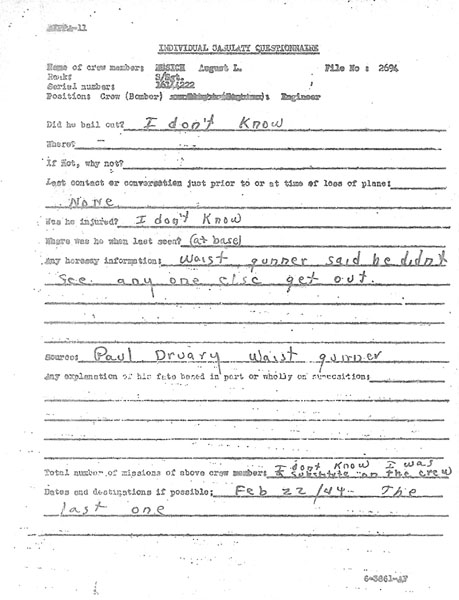 INDIVIDUAL CASUALTY QUESTIONNAIRE
Name of crew member: MUSICH August L. File No : 2694
Rank: S/Sgt.
Serial number:
Position: Crew (Bomber) Engineer
Did he bail out? I don't Know
Where?
If Not, why not?
Last contact or conversation just prior to or at time of loss of plane:
None
Was he injured? I don't Know
Where was he when last seen? (at base)
Any hearsay information: Waist gunner said he didn't
see any one else get out.
Source: Paul Druary waist gunner
Any explanation of his fate based in part or wholly on supposition:
Total number of missions of above crew member: I don't Know I was
a substitute on the crew
Dates and destinations if possible: Feb 22/44- The
last one
6-3861-AF